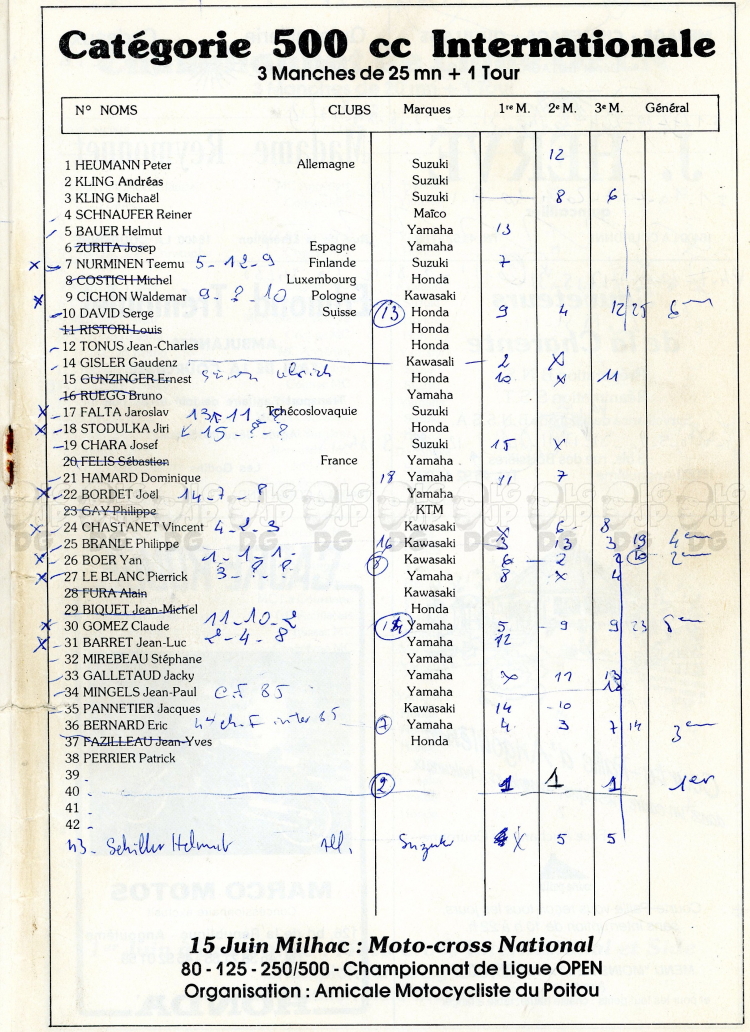 Catégorie 500 cc Internationale
3 Manches de 25 mn + 1 Tour
N° NOMS CLUBS Marques 1re M. 2e M. 3e M. Général
12
1 HEUMANN Peter Allemagne Suzuki
2 KLING Andréas Suzuki
3 KLING Michaël Suzuki 8 6
4 SCHNAUFER Reiner Maïco
5 BAUER Helmut Yamaha 13
6 ZURITA Josep Espagne Yamaha
x 7 NURMINEN Teemu 5-12-9 Finlande Suzuki 7
8 COSTICH Michel Luxembourg Honda
x 9 CICHON Waldemar 9-?-10 Pologne Kawasaki
10 DAVID Serge Suisse 13 Honda 9 4 12 25 6
11 RISTORI Louis Honda
12 TONUS Jean-Charles Honda
14 GISLER Gaudenz Kawasali 2 X
15 GUNZINGER Ernest Honda 10 x 11
16 RUEGG Bruno Yamaha
x 17 FALTA Jaroslav Tchécoslovaquie Suzuki
x 18 STODULKA Jiri 15-?-? Honda
19 CHARA Josef Suzuki 15 X
20 FELIS Sébastien France Yamaha
21 HAMARD Dominique 18 Yamaha 11 7
x 22 BORDET Joël 14-7-8 Yamaha
23 GAY Philippe KTM
x 24 CHASTANET Vincent 4-2-3 Kawasaki x 6 8
25 BRANLE Philippe 16 Kawasaki 3 13 3 19 4
x 26 BOER Yan 1-1-1- 8 Kawasaki 6 2 2 10 2
x 27 LE BLANC Pierrick 3-?-? Yamaha 8 x 4
28 FURA Alain Kawasaki
29 BIQUET Jean-Michel Honda
x 30 GOMEZ Claude 11-10-2 Yamaha 5 9 9 23 5
x 31 BARRET Jean-Luc 2-4-8 Yamaha 12
32 MIREBEAU Stéphane Yamaha
33 GALLETAUD Jacky Yamaha x 11 13
34 MINGELS Jean-Paul CF 85 Yamaha 10
35 PANNETIER Jacques Kawasaki 14 10
36 BERNARD Eric inter 85 7 Yamaha 4 3 7 14 3
37 FAZILLEAU Jean-Yves Honda
38 PERRIER Patrick
39
40 2 1 1 1 1er
41
42
43- Schiller Helmut All. Suzuki X 5 5
15 Juin Milhac : Moto-cross National
80 - 125 - 250/500 - Championnat de Ligue OPEN
Organisation : Amicale Motocycliste du Poitou